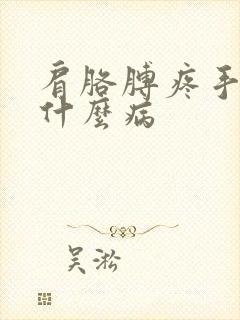 肩胳膊疼手
什麼病
吴淞